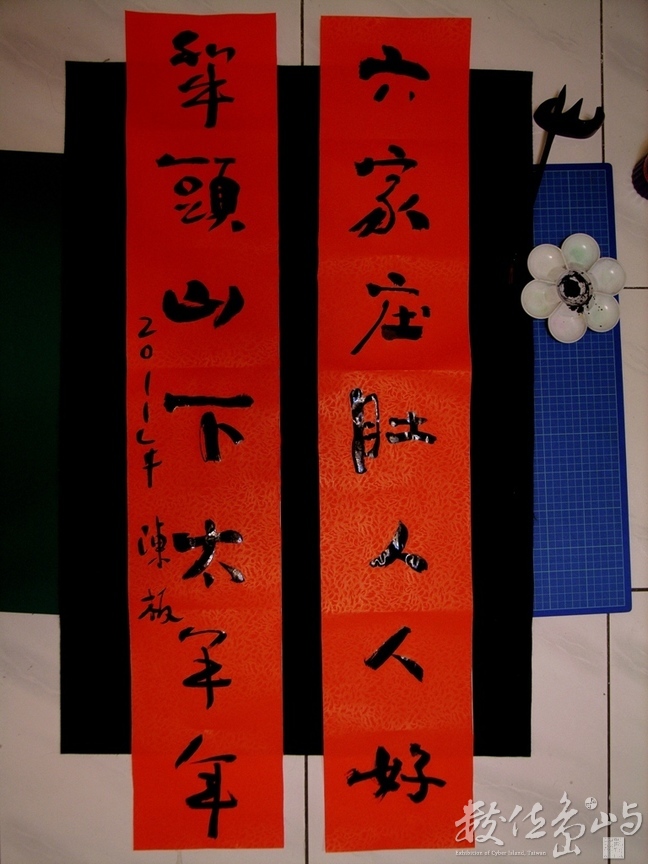 六家庄肚人人好
犁頭山下太平年
2011年 陳板
數位島嶼
Exhibition of Cyber Island, Taiwan